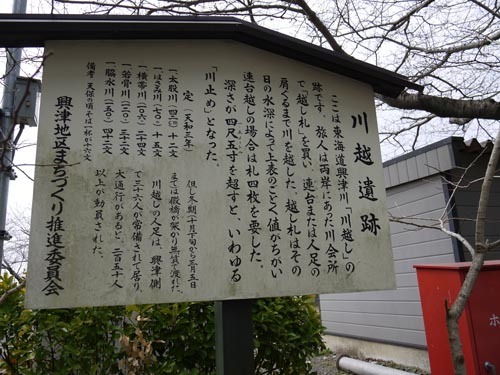 川越遺跡
ここは東海道興津川「川越し」の
跡です。旅人は両岸にあった川会所
で、「越し札」を買い、連台または人足の
肩ぐるまで川を越した。越し札はその
日の水深によって上表のごとく値がちがい
連台越しの場合は札四枚を要した。
深さが四尺五寸を超すと、いわゆる
「川止め」となった。
定(天和三年)
一太股川(四二)十二文
一はさみ川(七〇)十五文
一横帯川(一〇六)二十四文
一若骨川(一三〇)三十二文
一脇水川(一五〇)四十二文
備考 天保の頃そば一杯が十六文
但し冬期十月下旬から三月五日
までは仮橋が架かり無賃で渡れた。
川越しの人足は、興津側
で三十六人が常備されて居り、
大通行があると、二百五十人
以上が動員された。
興津地区まちづくり推進委員会
ホ